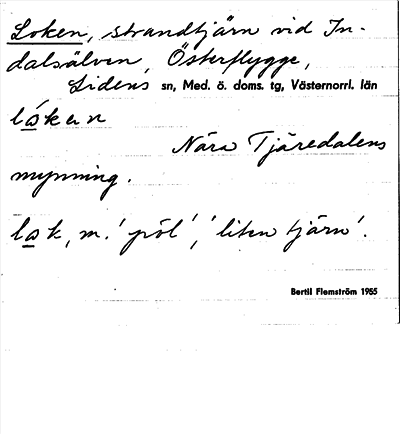 Loken, strandtjärn vid In-
dalsälven, Österflygge,
Lidens sn, Med. ö. doms. tg, Västernorrl. län
ló̲kɐn
Nära Tjäredalens
mynning.
lo̲k, m. 'pöl', 'liten tjärn'.
Bertil Flemström 1965